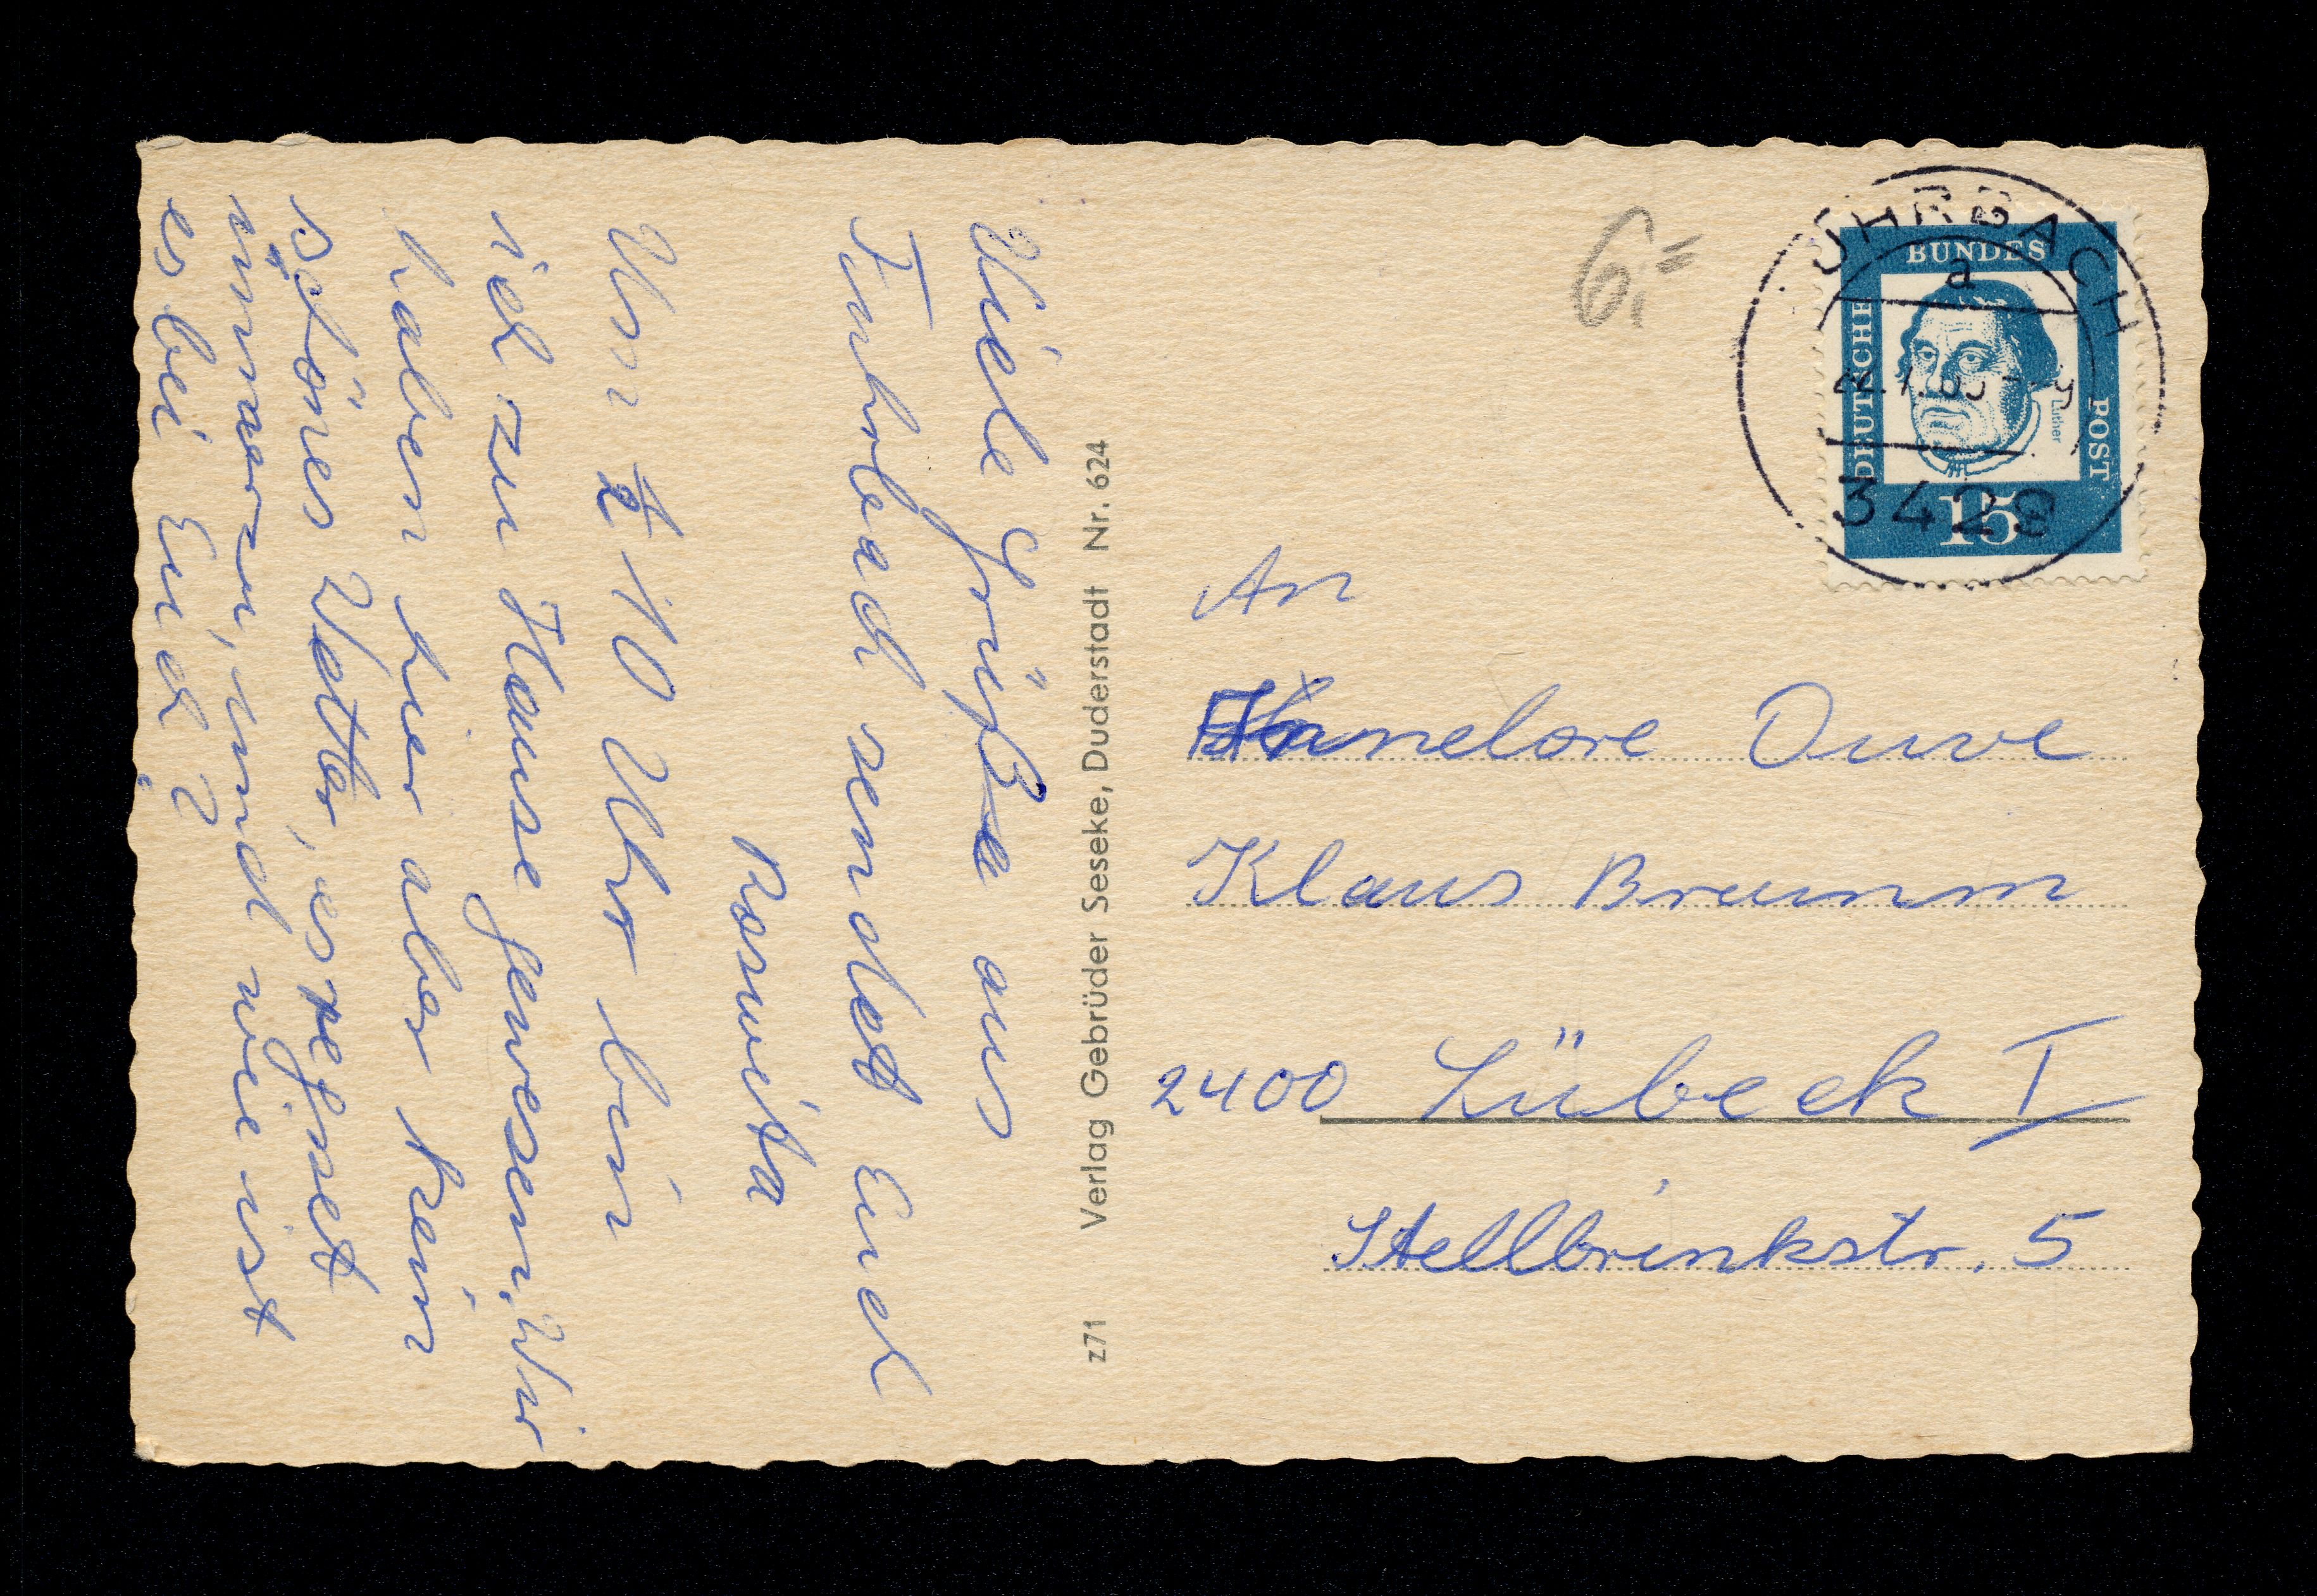 Viele Grüße aus
Fuhrbach sendet Euch
Roswita
Um ½ 10 Uhr bin
ich zu Hause gewesen. Wir
haben hier aber kein
schönes Wetter, es regnet
immerzu, und wie ist
es bei Euch?
Verlag Gebrüder Seseke, Duderstadt Nr. 624
z71
6,=
FUHRBACH
a
3429
DEUTSCHE
BUNDES
POST
Luther
15
An
Hannelore Duve
Klaus Brumm
2400 Lübeck I
Stellbrinkstr. 5